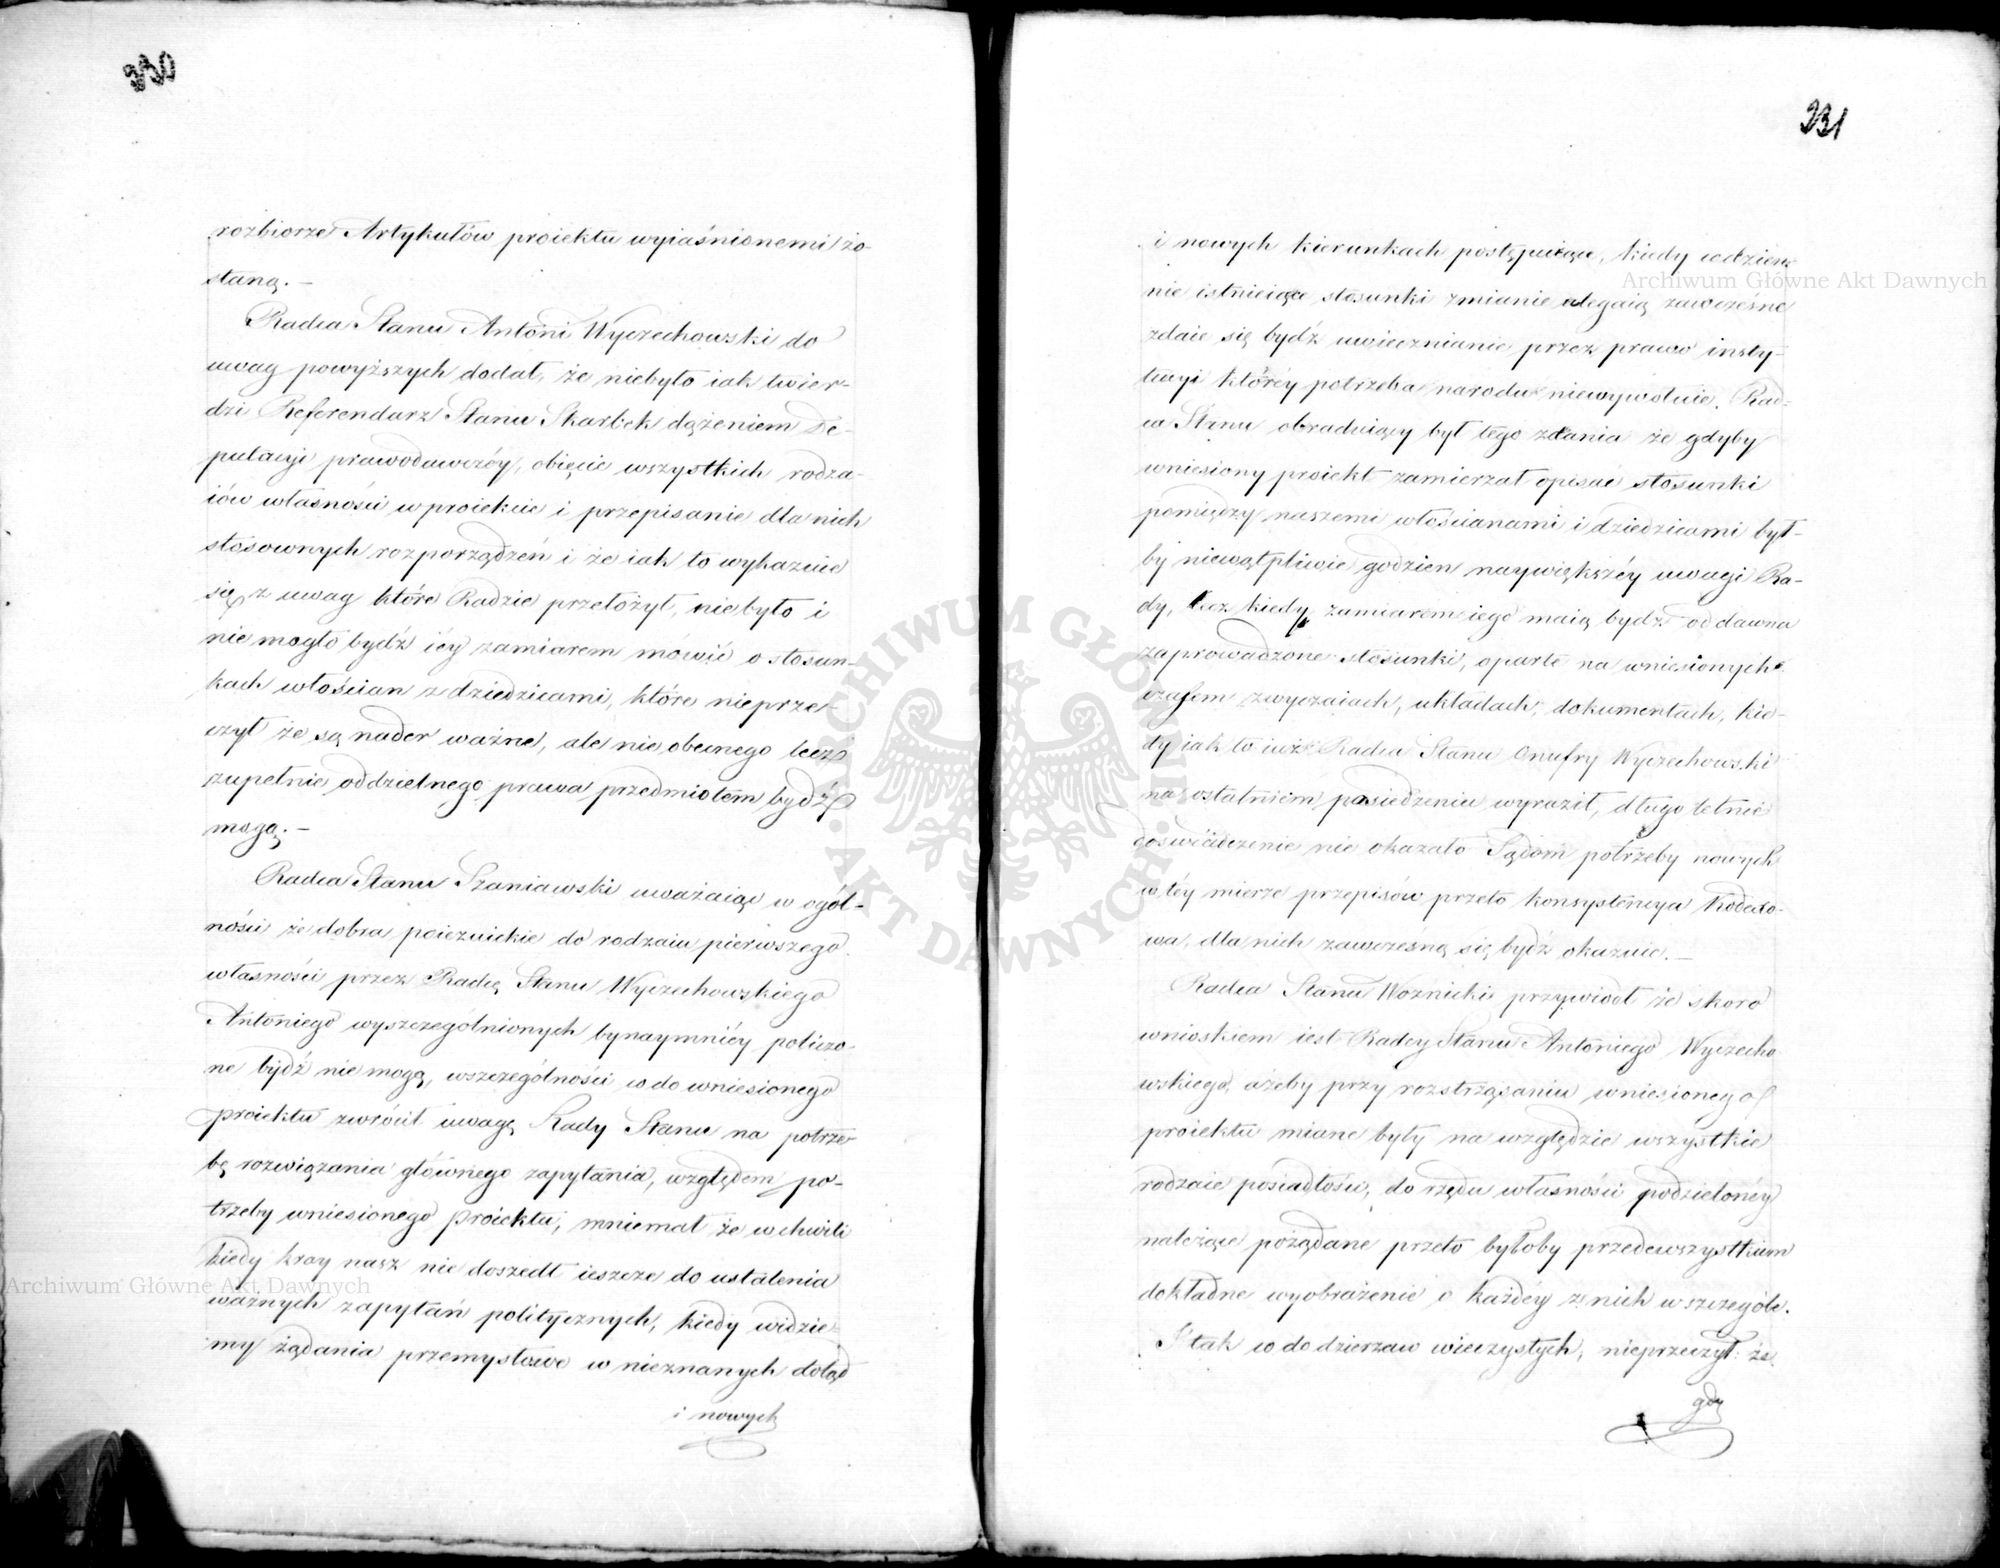 330
rozbiorze Artykułów proiektu wyiaśnionemi zo-
staną. —
Radca Stanu Antoni Wyczechowski do
uwag powyższych dodał, że niebyło iak twier-
dzi Referendarz Stanu Skarbek dążeniem De-
putacyi prawodawczéy, obięcie wszystkich rodza-
iów własności w proiekcie i przepisanie dla nich
stosownych rozporządzeń i że iak to wykazuie
się z uwag które Radzie przełożył, niebyło i
nie mogło bydź iéy zamiarem mówić o stosun-
kach włościan z dziedzicami, które nieprze-
czył że są nader ważne, ale nie obecnego lecz
zupełnie oddzielnego prawa przedmiotem bydź
mogą. —
Radca Stanu Szaniawski uważaiąc w ogól-
ności że dobra poiezuickie do rodzaiu pierwszego
własności przez Radcę Stanu Wyczechowskiego
Antoniego wyszczególnionych bynaymniéy policzo-
ne bydź nie mogą, wszczególności co do wniesionego
proiektu zwrócił uwagę Rady Stanu na potrze-
bę rozwiązania głównego zapytania, względem po-
trzeby wniesionego proiektu, mniemał że w chwili
kiedy kray nasz nie doszedł ieszcze do ustalenia
ważnych zapytań politycznych, kiedy widzie-
my żądania przemysłowe w nieznanych dotąd
i nowych
331
i nowych kierunkach postępuiące, kiedy codzien-
nie istnieiące stosunki zmianie ulegaią zawcześne
zdaie się bydź uwiecznianie przez prawo insty-
tucyi któréy potrzeba narodu niewywołuie. Rad-
ca Stanu obraduiący był tego zdania że gdyby
wniesiony proiekt zamierzał opisać stosunki
pomiędzy naszemi włościanami i dziedzicami był-
by niewątpliwie godzien naywiększéy uwagi Ra-
dy, lecz kiedy zamiarem iego maią bydź oddawna
zaprowadzone stosunki, oparte na wniesionych
czasem zwyczaiach, układach, dokumentach, kie-
dy iak to iuż Radca Stanu Onufry Wyczechowski
na ostatniém posiedzeniu wyraził, długoletnie
doświadczenie nie okazało Sądom potrzeby nowych
w téy mierze przepisów przeto konsystencya kodexo-
wa, dla nich zawcześną się bydź okazuie. —
Radca Stanu Woźnicki przywiódł że skoro
wnioskiem iest Radcy Stanu Antoniego Wyczecho
wskiego, ażeby przy roztrząsaniu wniesionego
proiektu miane były na względzie wszystkie
rodzaie posiadłości, do rzędu własności podzielonéy
należące pożądane przeto byłoby przedewszystkiem
dokładne wyobrażenie o każdéy z nich w szczególe.
I tak co do dzierzaw wieczystych, nieprzeczył że
gdy
Archiwum Główne Akt Dawnych
Archiwum Główne Akt Dawnych
ARCHIWUM GŁÓWNE · AKT DAWNYCH ·